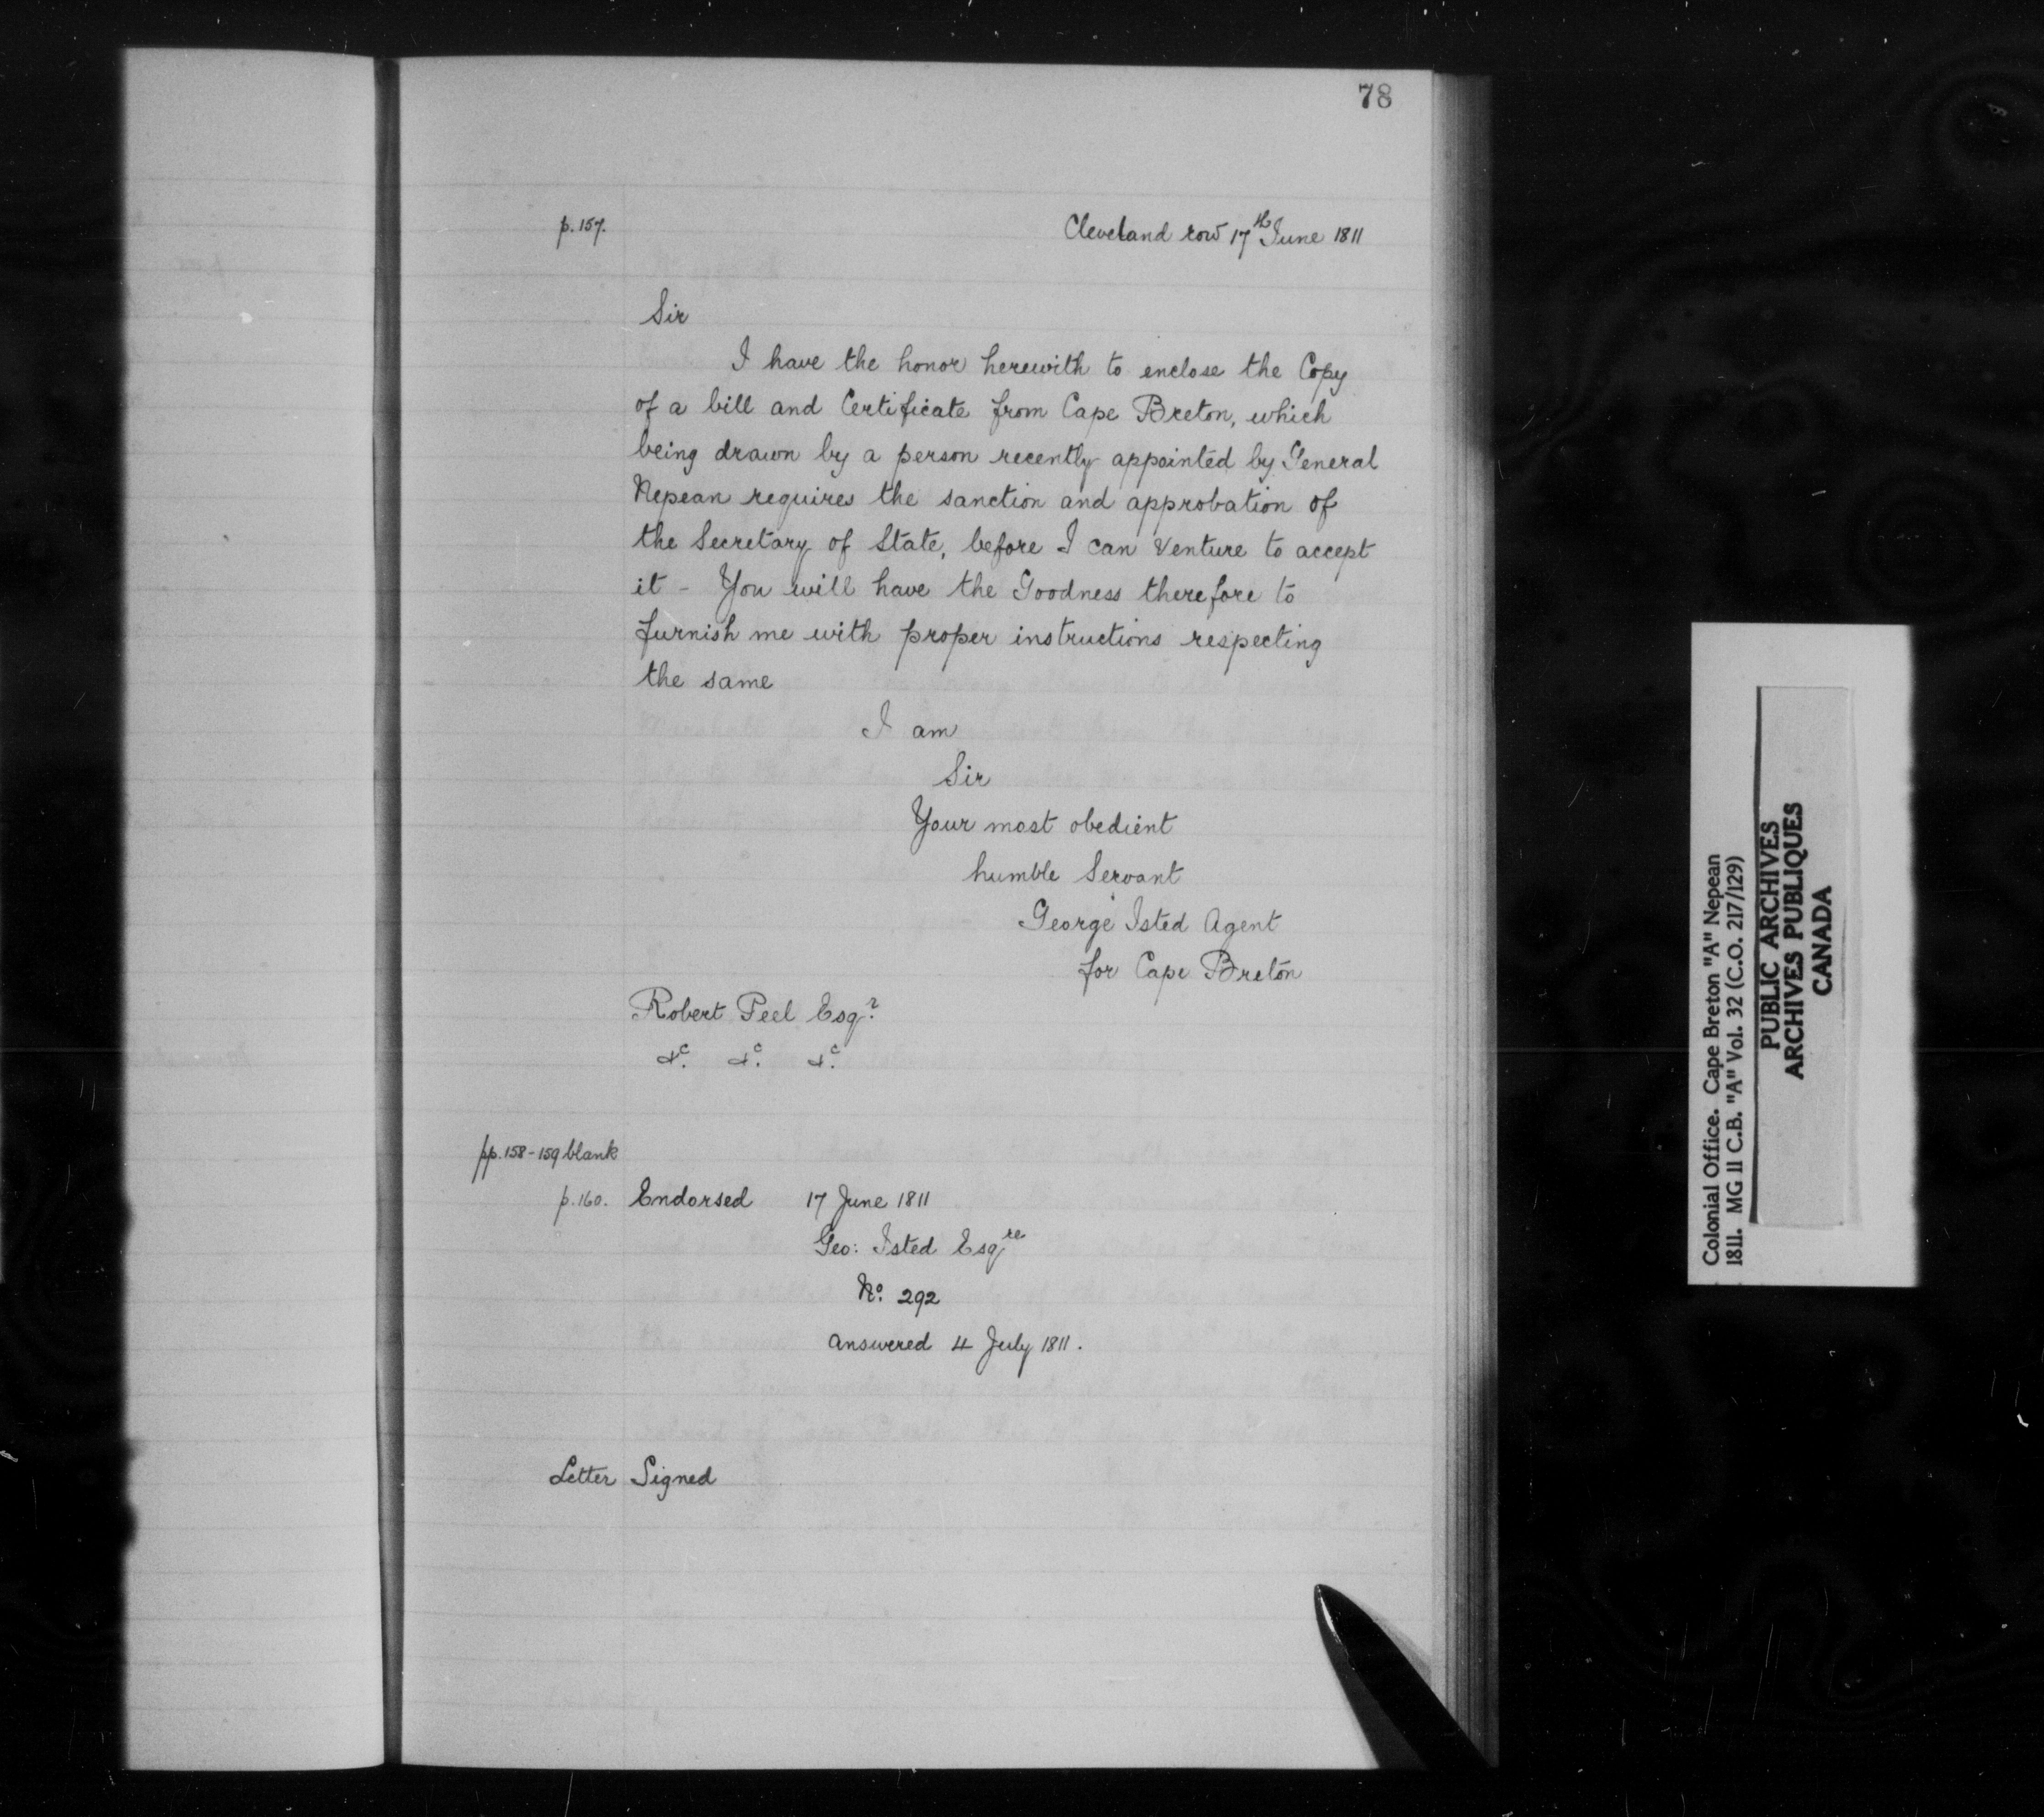 78
p. 157.
Cleveland row 17th June 1811
Sir
I have the honor herewith to enclose the Copy
of a bill and Certificate from Cape Breton, which
being drawn by a person recently appointed by General
Nepean requires the sanction and approbation of
the Secretary of State, before I can Venture to accept
it - You will have the Goodness therefore to
furnish me with proper instructions respecting
the same
I am
Sir
Your most obedient
humble Servant
George Isted Agent
for Cape Breton
Robert Peel Esqr.
&c. &c. &c.
pp. 158-159 blank
p. 160. Endorsed 17 June 1811
Geo: Isted Esqre
No. 292
Answered 4 July 1811.
Letter Signed
Colonial Office. Cape Breton "A" Nepean
1811. MG 11 C.B. "A" Vol. 32 (C.O. 217/129)
PUBLIC ARCHIVES
ARCHIVES PUBLIQUES
CANADA